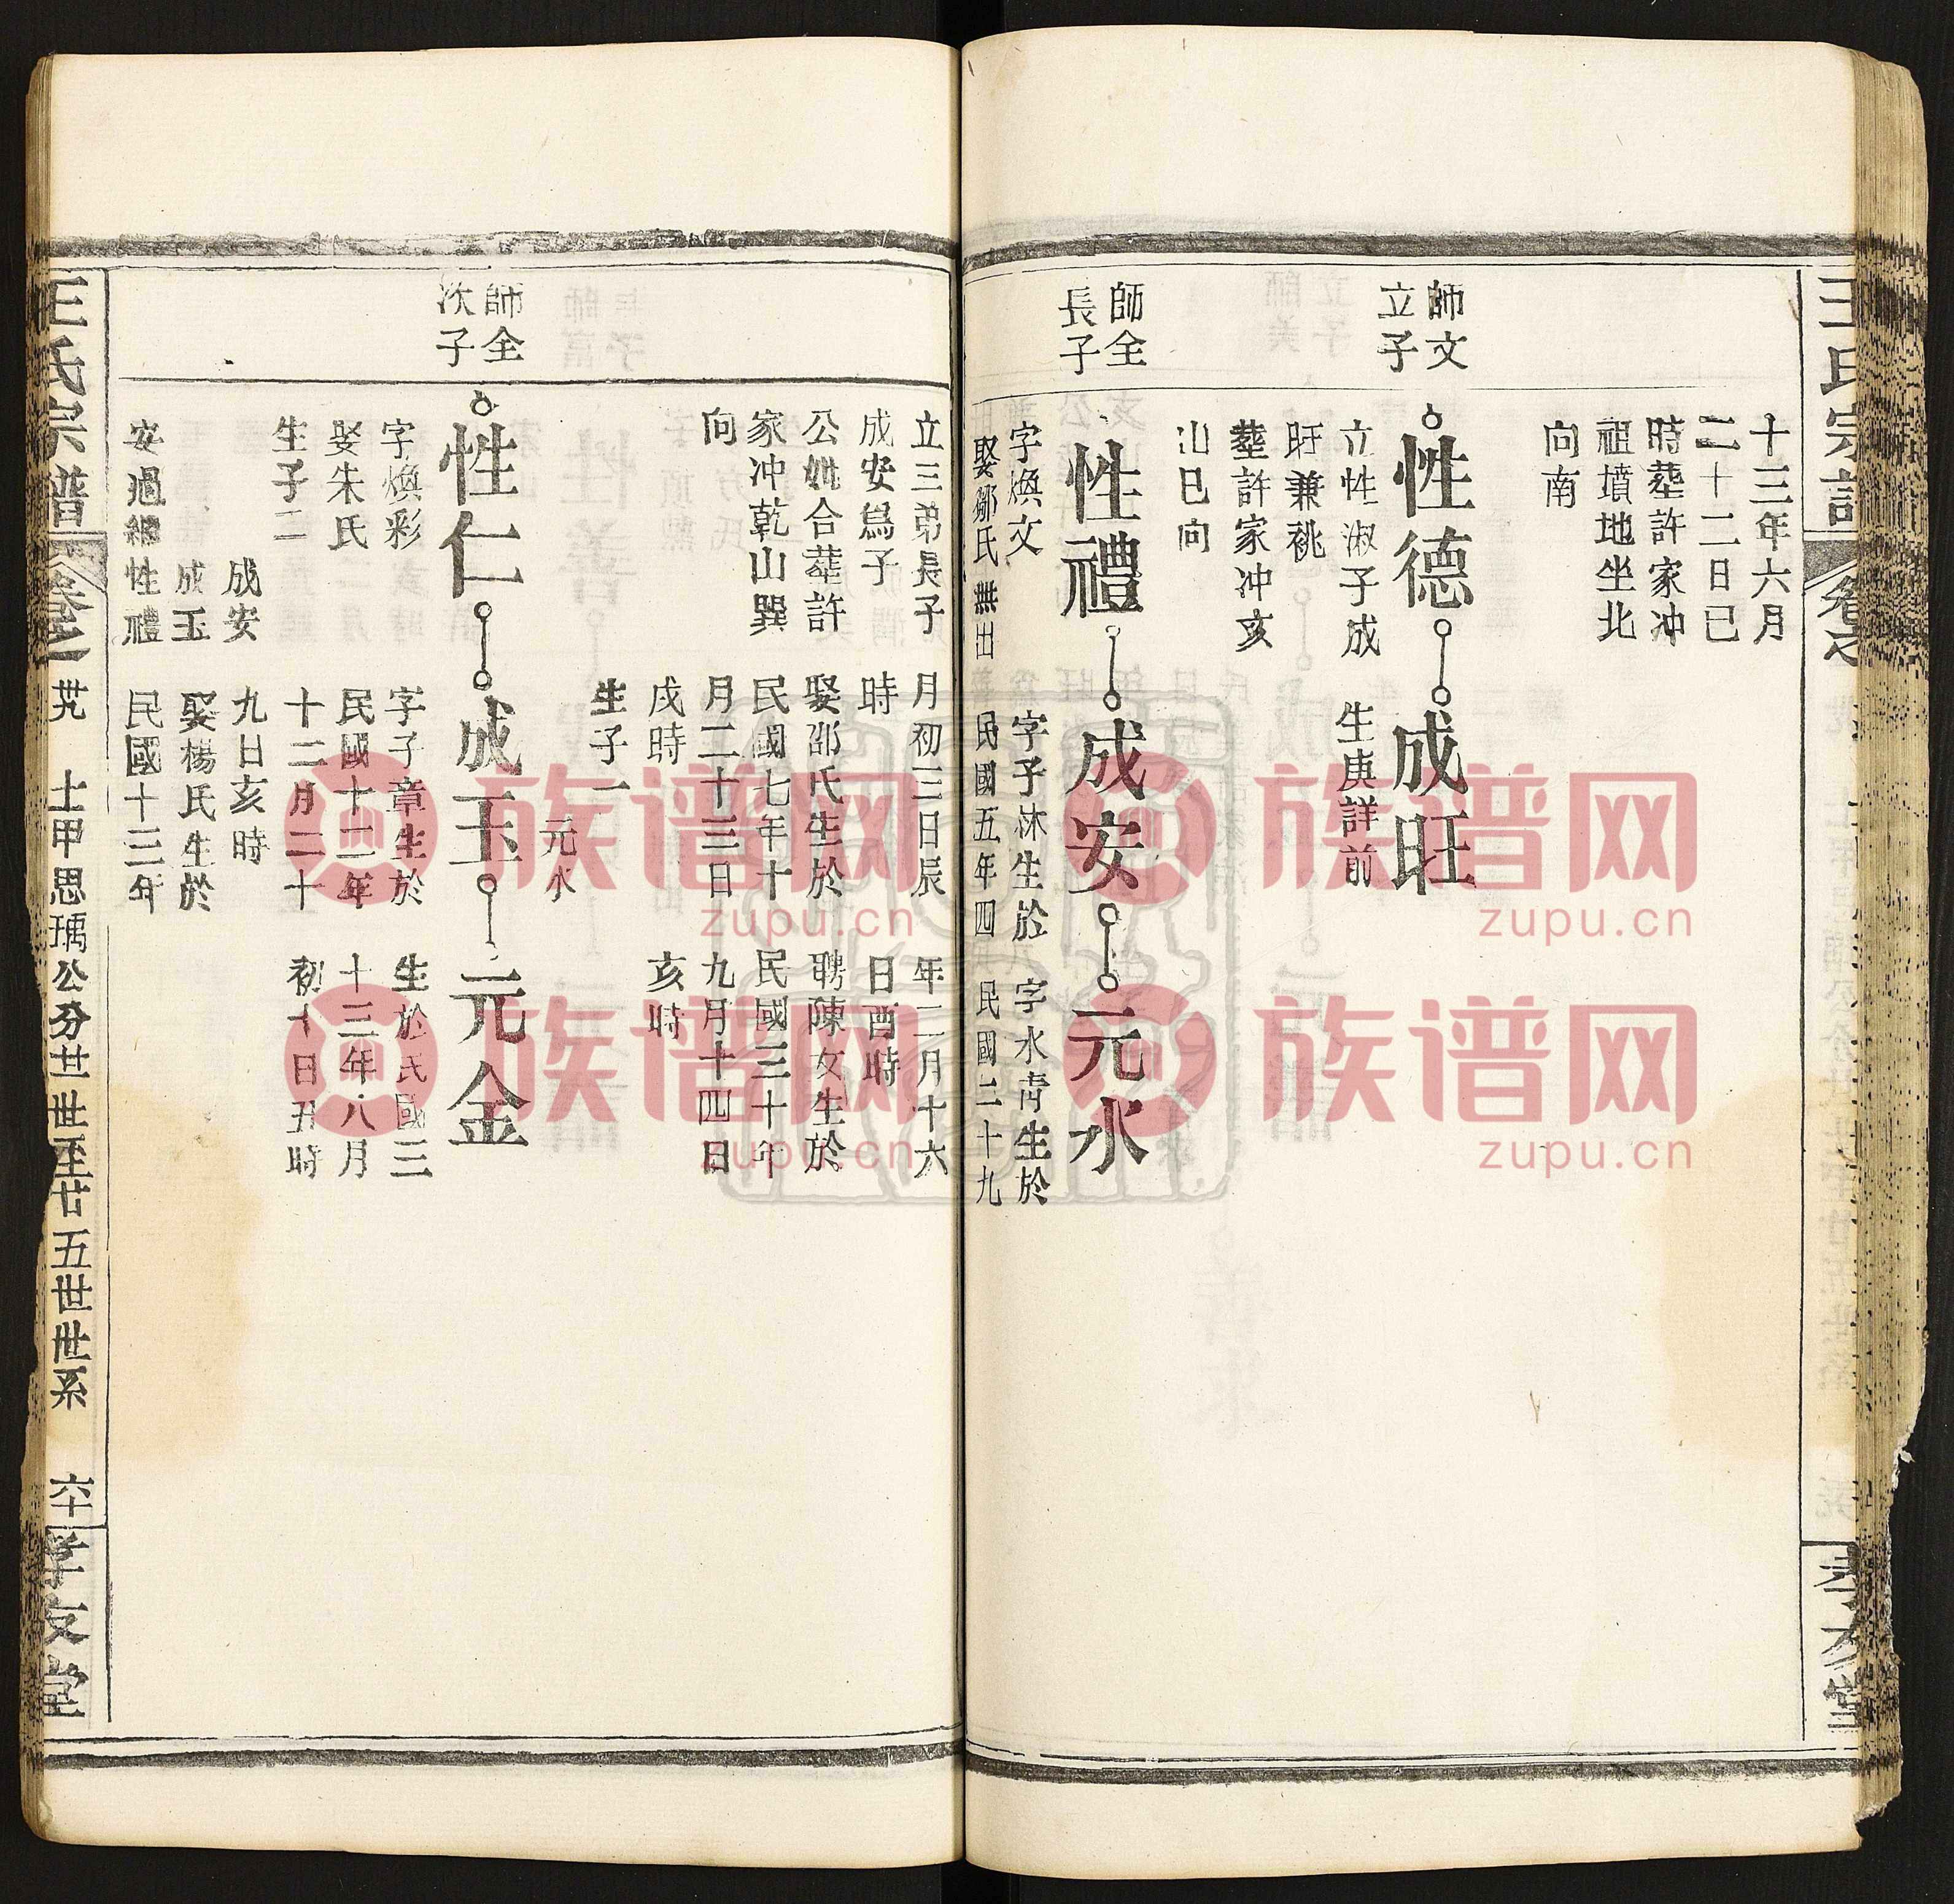 王氏宗譜
十三年六月
二十二日巳
時葬許家冲
祖墳地坐北
向南
師文
立子
性德
成旺
立性淑子成
旺兼祧
葬許家冲亥
山巳向
生庚詳前
師全
長子
性禮
成安
元水
字煥文
娶鄒氏無出
字子沐生於
民國五年四
字水清生於
民國二十九
立三弟長子
成安爲子
公妣合葬許
家冲乾山巽
向
月初三日辰
時
娶邵氏生於
民國七年十
月二十三日
戌時
生子一
元水
年二月十六
日酉時
聘陳女生於
民國三十年
九月十四日
亥時
師全
次子
性仁
成玉
元金
字煥彩
娶朱氏
生子二
成安
成玉
安過繼性禮
字子章生於
民國十二年
十二月二十
九日亥時
娶楊氏生於
民國十三年
生於民國三
十三年八月
初十日丑時
王氏宗譜
卷
上甲思瑀公分廿世至廿五世世系
六十
堂
族谱网
zupu.cn
族谱网
zupu.cn
族谱网
zupu.cn
族谱网
zupu.cn